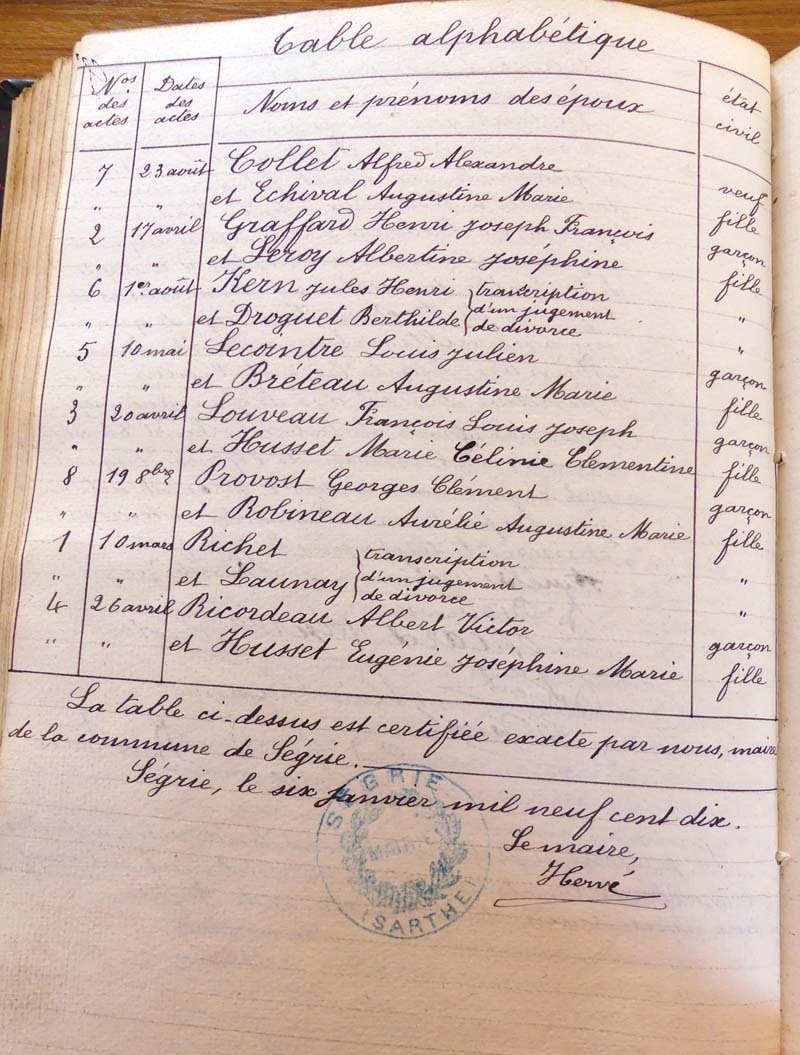 Table alphabétique
Nos des actes | Dates des actes | Noms et prénoms des époux | état civil
7 | 23 août | Collet Alfred Alexandre | veuf
" | " | et Echival Augustine Marie | fille
2 | 17 avril | Graffard Henri Joseph François | garçon
" | " | et Leroy Albertine Joséphine | fille
6 | 1er août | Kern Jules Henri } transcription | "
" | " | et Droguet Berthilde } d'un jugement de divorce | "
5 | 10 mai | Lecointre Louis Julien | garçon
" | " | et Bréteau Augustine Marie | fille
3 | 20 avril | Louveau François Louis Joseph | garçon
" | " | et Husset Marie Célinie Clementine | fille
8 | 19 8bre | Provost Georges Clément | garçon
" | " | et Robineau Aurélie Augustine Marie | fille
1 | 10 mars | Richet } transcription | "
" | " | et Launay } d'un jugement de divorce | "
4 | 26 avril | Ricordeau Albert Victor | garçon
" | " | et Husset Eugénie Joséphine Marie | fille
La table ci-dessus est certifiée exacte par nous, maire
de la commune de Ségrie.
Ségrie, le six janvier mil neuf cent dix.
Le maire,
Hervé
SEGRIE
MAIRIE
(SARTHE)